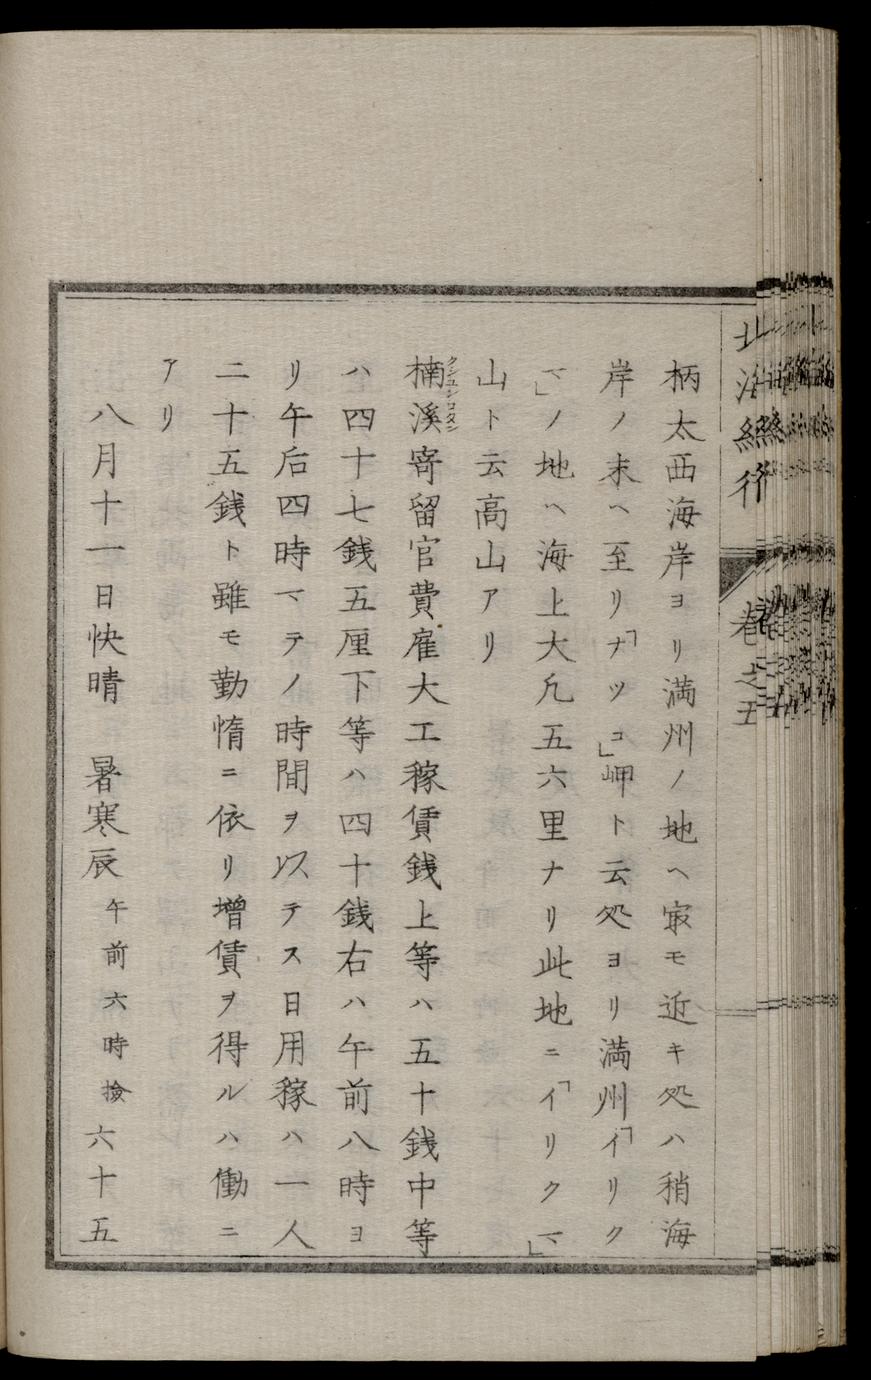 北海紀行 巻之五
柄太西海岸ヨリ満州ノ地ヘ㝡モ近キ処ハ稍海
岸ノ末ヘ至リ「ナツコ」岬ト云処ヨリ満州「イリク
マ」ノ地ヘ海上大凡五六里ナリ此地ニ「イリクマ」
山ト云高山アリ
楠溪寄留官費雇大工稼賃銭上等ハ五十銭中等
クシュンコタン
ハ四十七銭五厘下等ハ四十銭右ハ午前八時ヨ
リ午后四時マテノ時間ヲ以テス日用稼ハ一人
二十五銭ト雖モ勤惰ニ依リ増賃ヲ得ルハ働ニ
アリ
八月十一日快晴 暑寒辰午前六時撿六十五